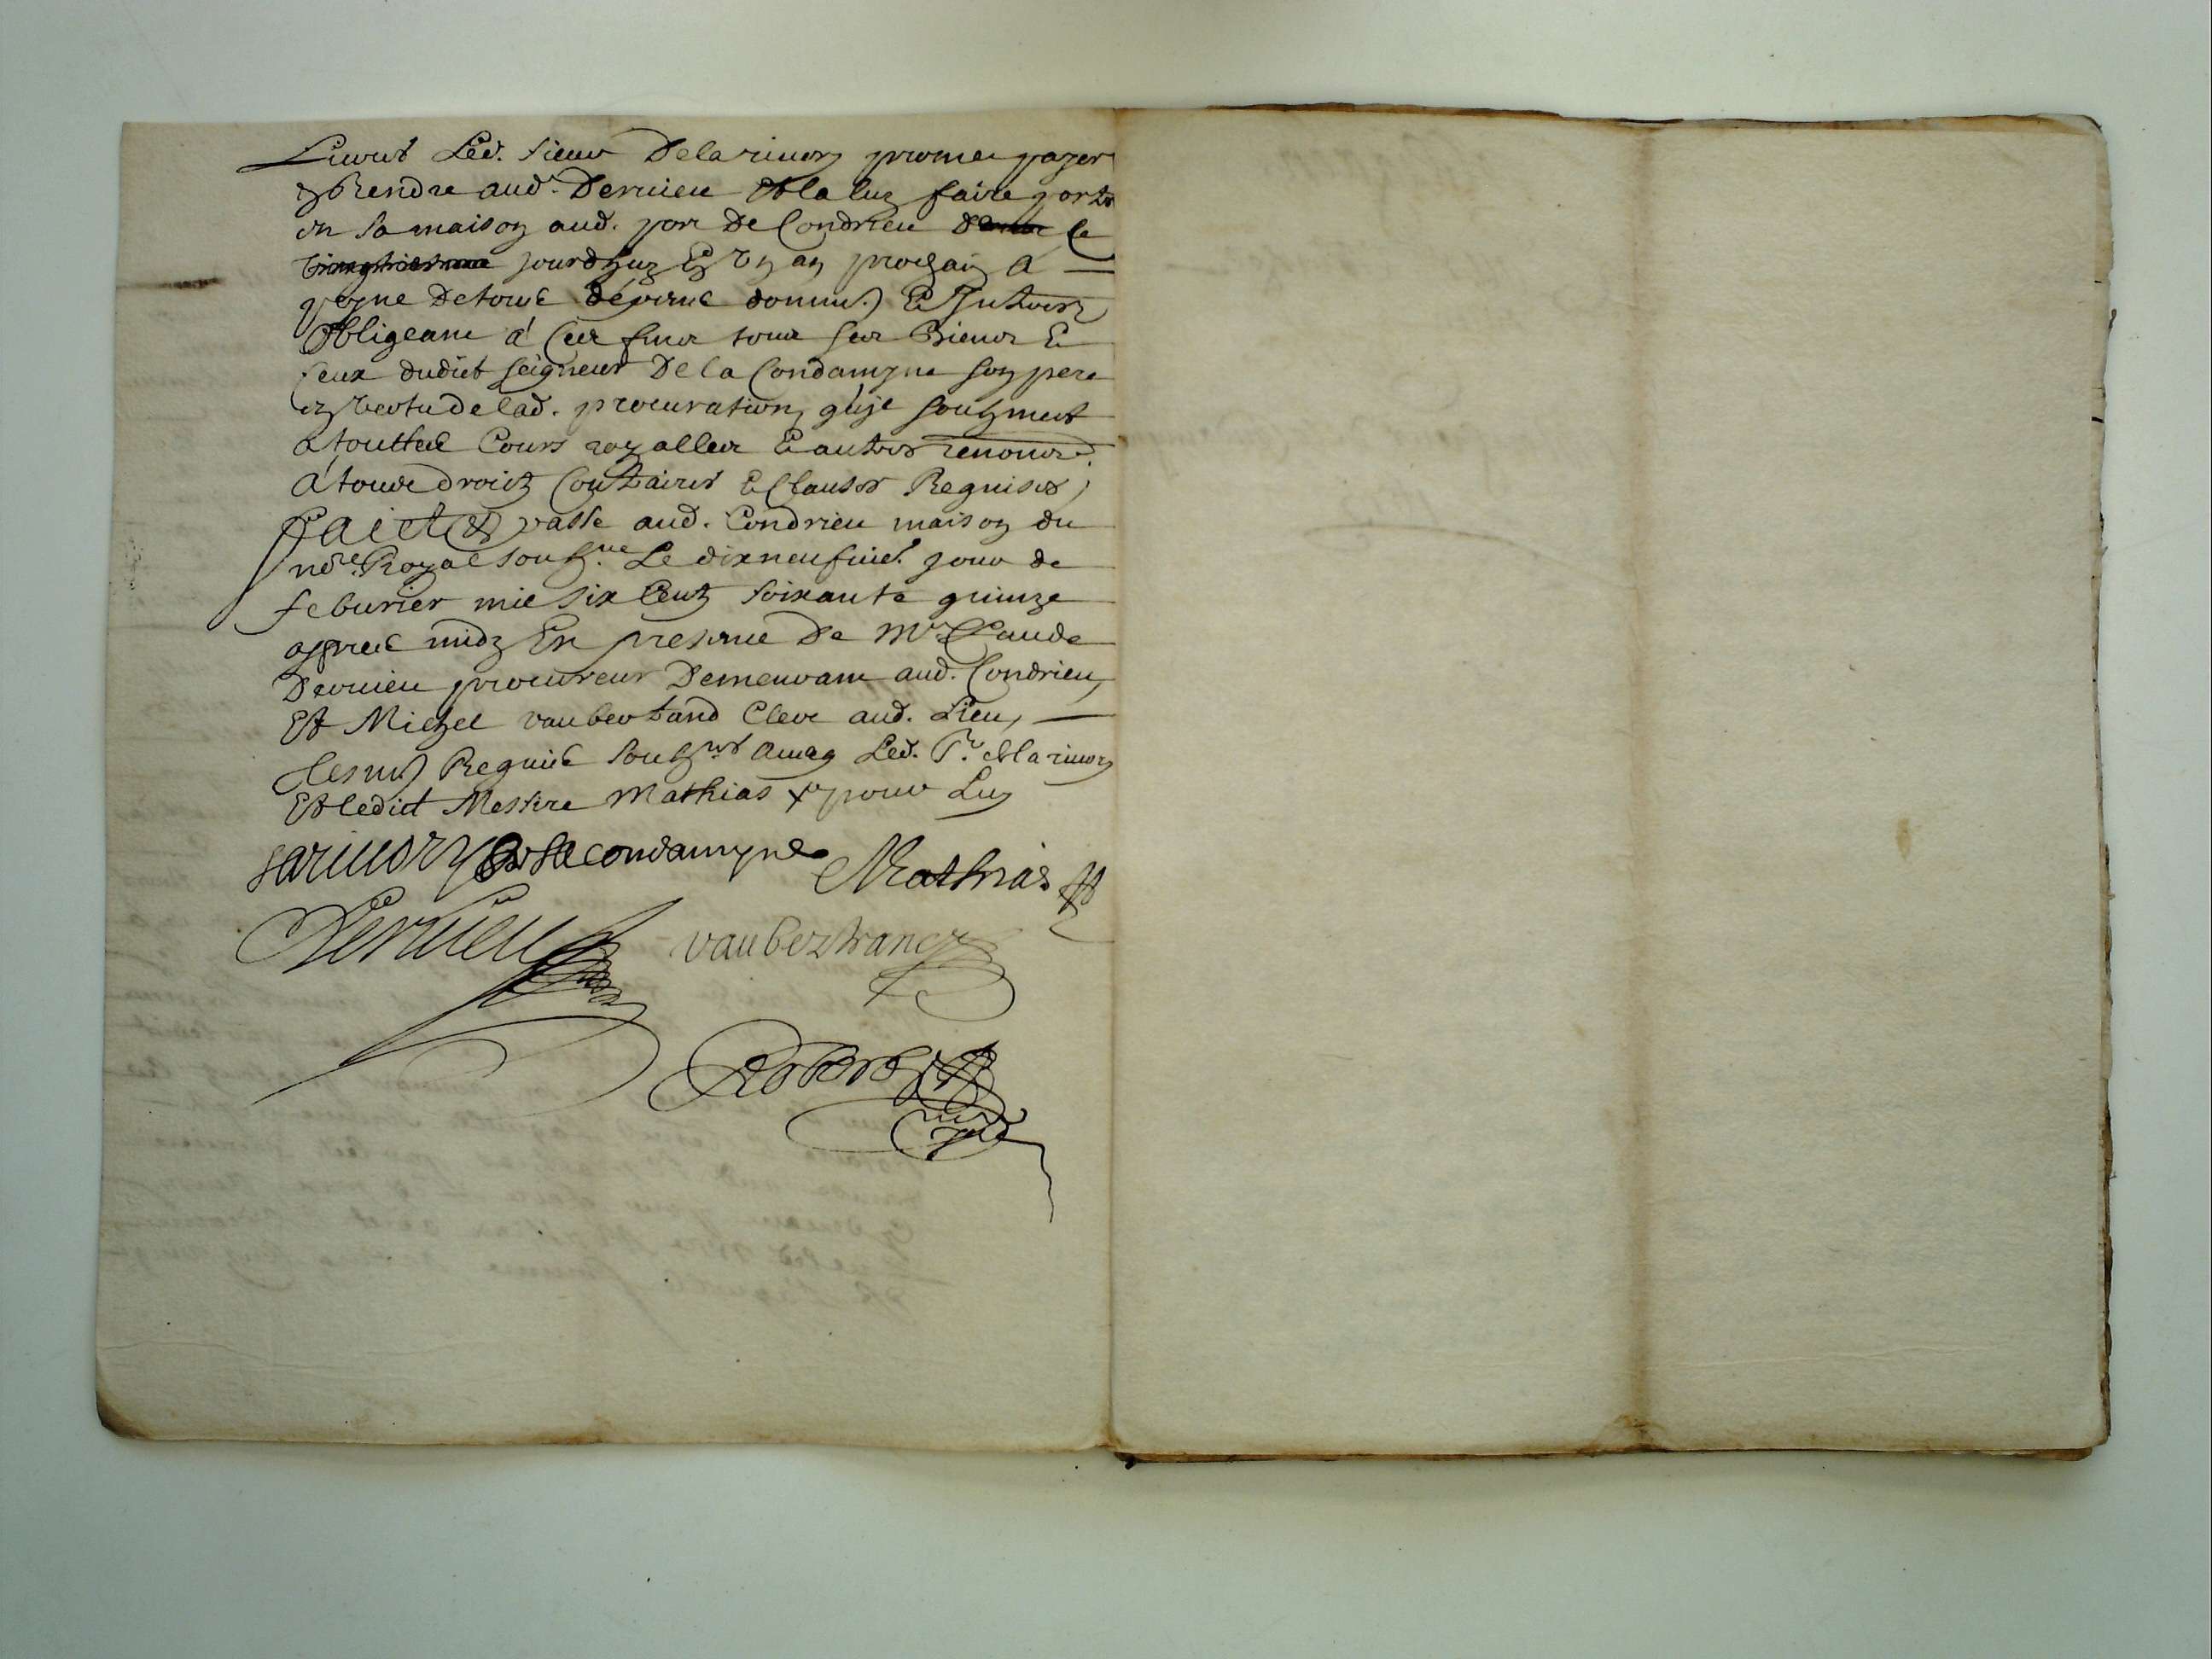 Livres Led. sieur Delarivory promet payer
& Rendre aud. Dervieu Et la luy faire porter
en sa maison aud. port De Condrieu le
jourdhuy En Un an prochain a
peyne de tous despens dommages Et Interestz
Obligeant a ces fins tous ses Biens Et
ceux dudict seigneur De la Condamyne son pere
en vertu de lad. procuration, qu'il soubzmect
a touttes Cours royalles Et autres renoncé.
a tous droictz Contraires & Clauses Requises,
Faict & passé aud. Condrieu maison du
nore. Royal soubne. Le dixneufvie. jour de
febvrier mil six Centz soixante quinze
appres midy En presence De Mre Claude
Dervieu procureur Demeurant aud. Condrieu,
Et Michel vaubertrand Clerc aud. Lieu,
Tesm. Requis soubznes avecq Led. Sr. de Larivory
Et ledict Messire Mathias pour Luy
Larivory de la condamyne
Mathias
Dervieu
vaubertrand